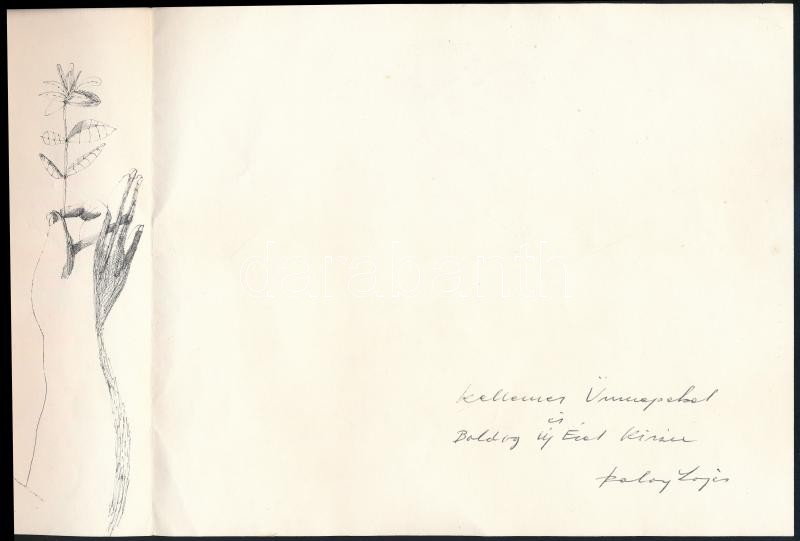 Kellemes Ünnepeket
és
Boldog Új Évet Kíván
Lajos
darabanth